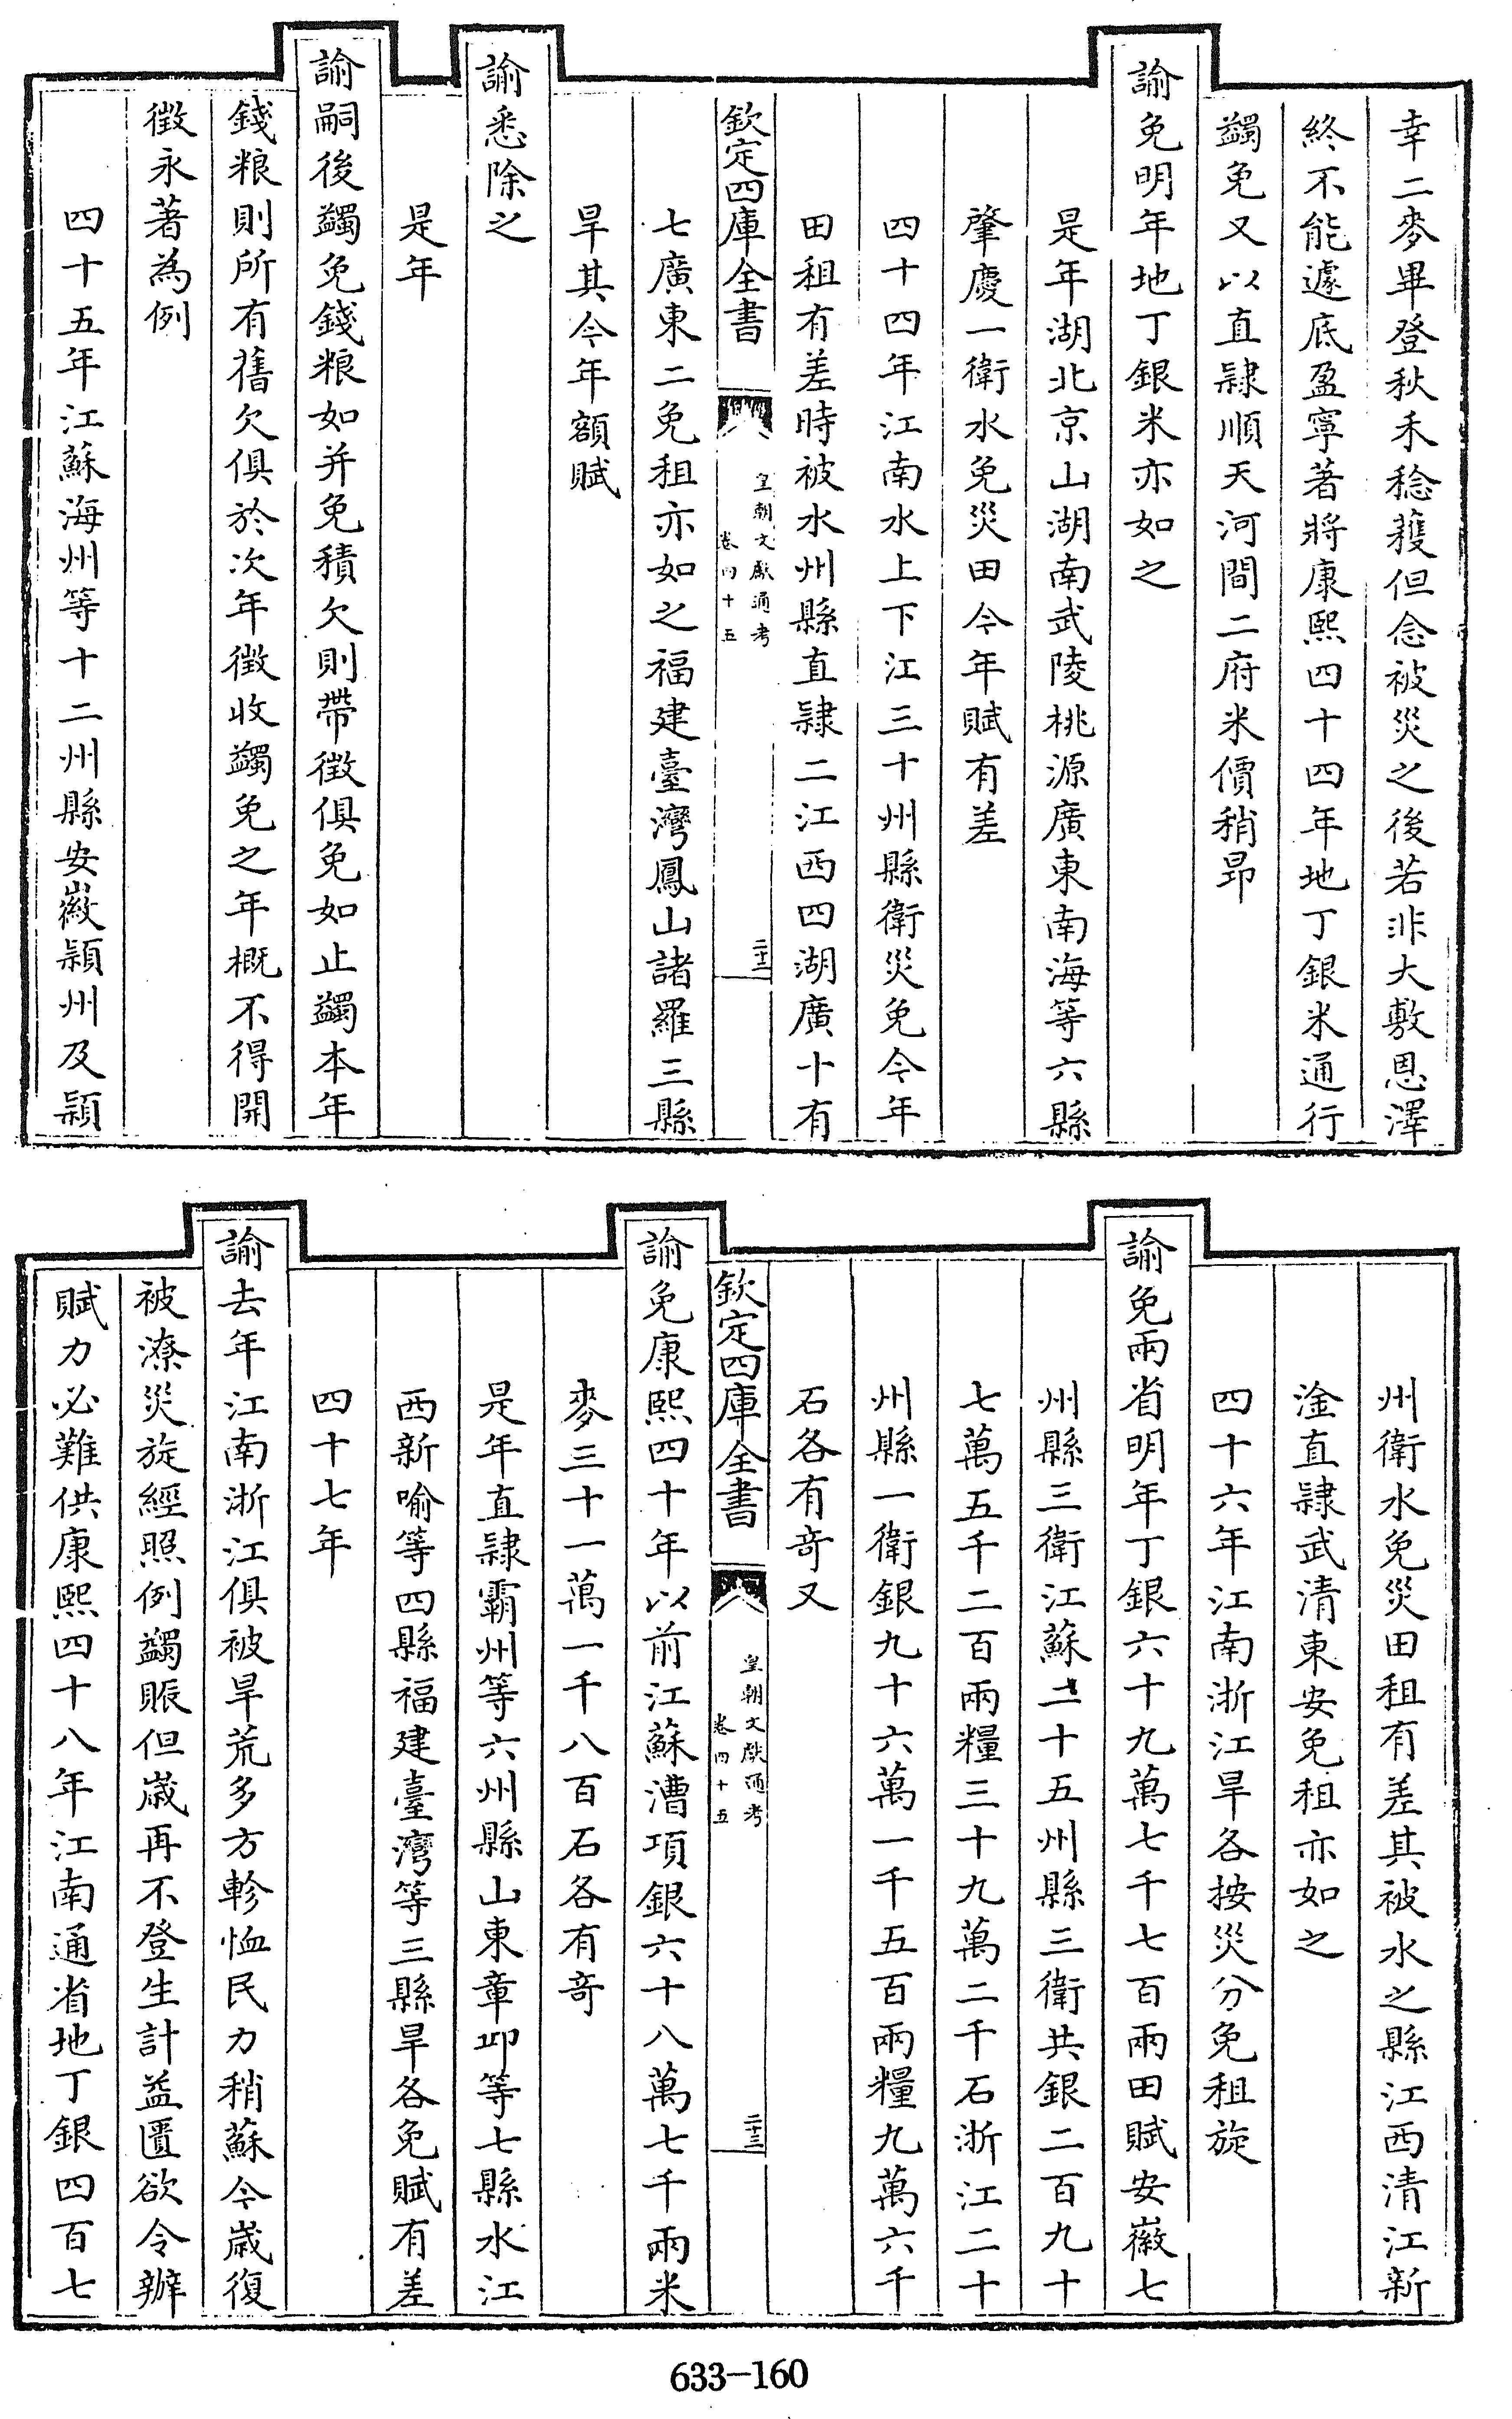 幸二麥畢登秋禾稔穫但念被災之後若非大敷恩澤
終不能遽底盈寧著將康熙四十四年地丁銀米通行
蠲免又以直隷順天河間二府米價稍昂
諭免明年地丁銀米亦如之
是年湖北京山湖南武陵桃源廣東南海等六縣
肇慶一衛水免災田今年賦有差
四十四年江南水上下江三十州縣衛災免今年
田租有差時被水州縣直隷二江西四湖廣十有
欽定四庫全書
皇朝文獻通考
卷四十五
二十二
七廣東二免租亦如之福建臺灣鳳山諸羅三縣
旱其今年額賦
諭悉除之
是年
諭嗣後蠲免錢粮如并免積欠則帶徵俱免如止蠲本年
錢粮則所有舊欠俱於次年徵收蠲免之年概不得開
徵永著為例
四十五年江蘇海州等十二州縣安徽潁州及潁
州衛水免災田租有差其被水之縣江西清江新
淦直隷武清東安免租亦如之
四十六年江南浙江旱各按災分免租旋
諭免兩省明年丁銀六十九萬七千七百兩田賦安徽七
州縣三衛江蘇二十五州縣三衛共銀二百九十
七萬五千二百兩糧三十九萬二千石浙江二十
州縣一衛銀九十六萬一千五百兩糧九萬六千
石各有竒又
欽定四庫全書
皇朝文獻通考
卷四十五
二十三
諭免康熙四十年以前江蘇漕項銀六十八萬七千兩米
麥三十一萬一千八百石各有竒
是年直隷霸州等六州縣山東章邱等七縣水江
西新喻等四縣福建臺灣等三縣旱各免賦有差
四十七年
諭去年江南浙江俱被旱荒多方軫恤民力稍蘇今歲復
被潦災旋經照例蠲賑但歲再不登生計益匱欲令辦
賦力必難供康熙四十八年江南通省地丁銀四百七
633-160